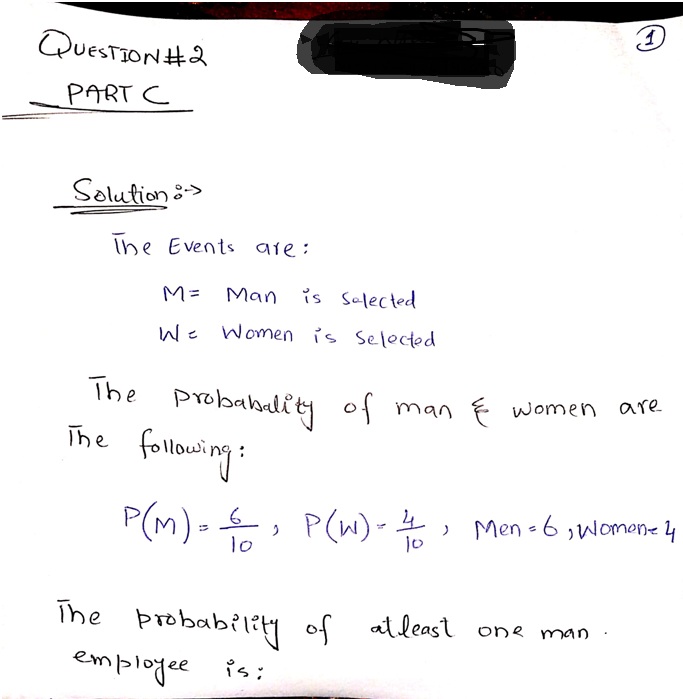 QUESTION#2
①
PART C
Solution :->
The Events are :
M= Man is selected
W= Women is selected
The probabality of man & women are
The following :
P(M) = 6/10 , P(W) = 4/10 , Men = 6 , Women = 4
The probability of atleast one man .
employee is :